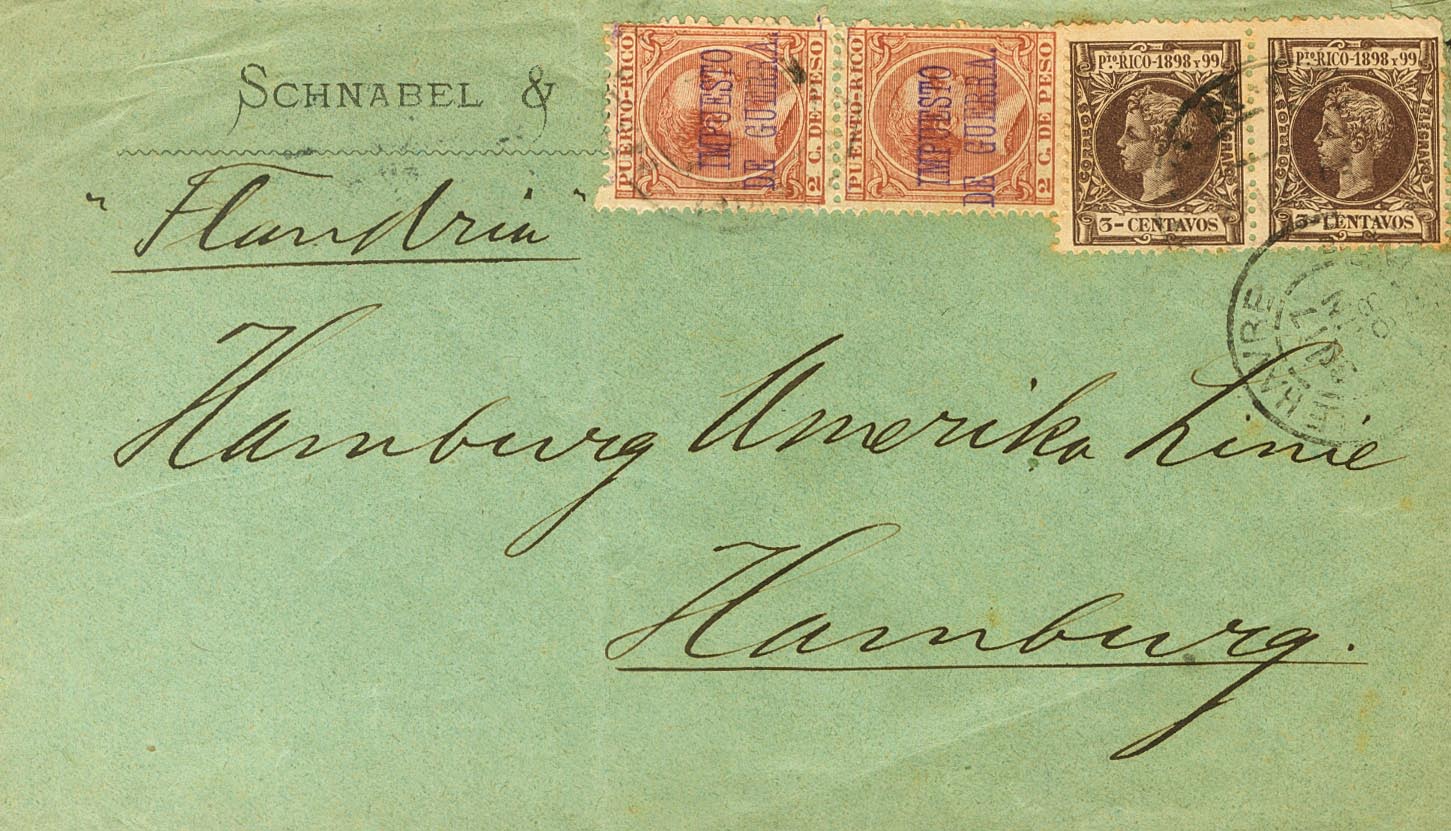 SCHNABEL &
"Flandria"
Hamburg Amerika Linie
Hamburg.
PUERTO-RICO
IMPUESTO
DE GUERRA.
2 C. DE PESO
PUERTO-RICO
IMPUESTO
DE GUERRA.
2 C. DE PESO
PTO RICO-1898 Y 99
CORREOS
TELEGRAFOS
3-CENTAVOS
PTO RICO-1898 Y 99
CORREOS
TELEGRAFOS
3-CENTAVOS
LE HAVRE